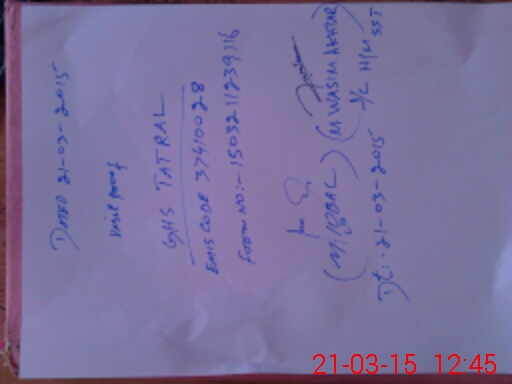 DATED 21-03-2015
visit proof
GHS TATRAL
EMIS CODE 37410028
FORM NO:- 1503211239116
(M.IQBAL) (M WASIM AKHTAR)
I/C H/M SST
Dt:- 21-03-2015
21-03-15 12:45